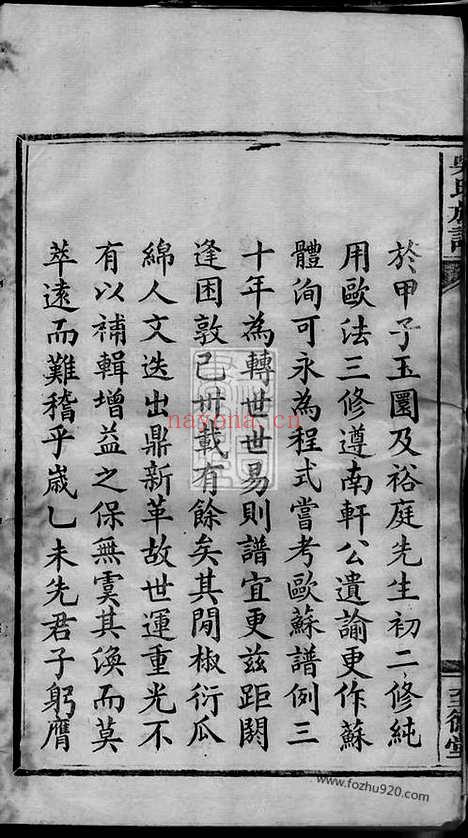 於甲子玉園及裕庭先生初二修純
用歐法三修遵南軒公遺諭更作蘇
體洵可永為程式嘗考歐蘇譜例三
十年為轉世世易則譜宜更茲距閼
逢困敦已卅載有餘矣其間椒衍瓜
綿人文迭出鼎新革故世運重光不
有以補輯增益之保無虞其渙而莫
萃遠而難稽乎嵗乙未先君子躬膺
吳氏族譜
至德堂
nayona.cn
www.fozhu920.com